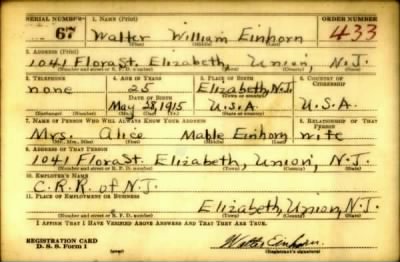 SERIAL NUMBER 1. NAME (Print) ORDER NUMBER
67 Walter William Einhorn 433
(First) (Middle) (Last)
2. ADDRESS (Print)
1041 Flora St. Elizabeth, Union, N.J.
(Number and street or R. F. D. number) (Town) (County) (State)
3. TELEPHONE 4. AGE IN YEARS 5. PLACE OF BIRTH 6. COUNTRY OF CITIZENSHIP
none 25 Elizabeth, N.J.
DATE OF BIRTH (Town or county)
May 28, 1915 U.S.A. U.S.A.
(Exchange) (Number) (Mo.) (Day) (Yr.) (State or country)
7. NAME OF PERSON WHO WILL ALWAYS KNOW YOUR ADDRESS 8. RELATIONSHIP OF THAT PERSON
Mrs. Alice Mable Einhorn wife
(Mr., Mrs., Miss) (First) (Middle) (Last)
9. ADDRESS OF THAT PERSON
1041 Flora St. Elizabeth, Union, N.J.
(Number and street or R. F. D. number) (Town) (County) (State)
10. EMPLOYER'S NAME
C.R.R. of N.J.
11. PLACE OF EMPLOYMENT OR BUSINESS
Elizabeth, Union, N.J.
(Number and street or R. F. D. number) (Town) (County) (State)
I AFFIRM THAT I HAVE VERIFIED ABOVE ANSWERS AND THAT THEY ARE TRUE.
REGISTRATION CARD
D. S. S. Form 1 Walter Einhorn
(Registrant's signature)